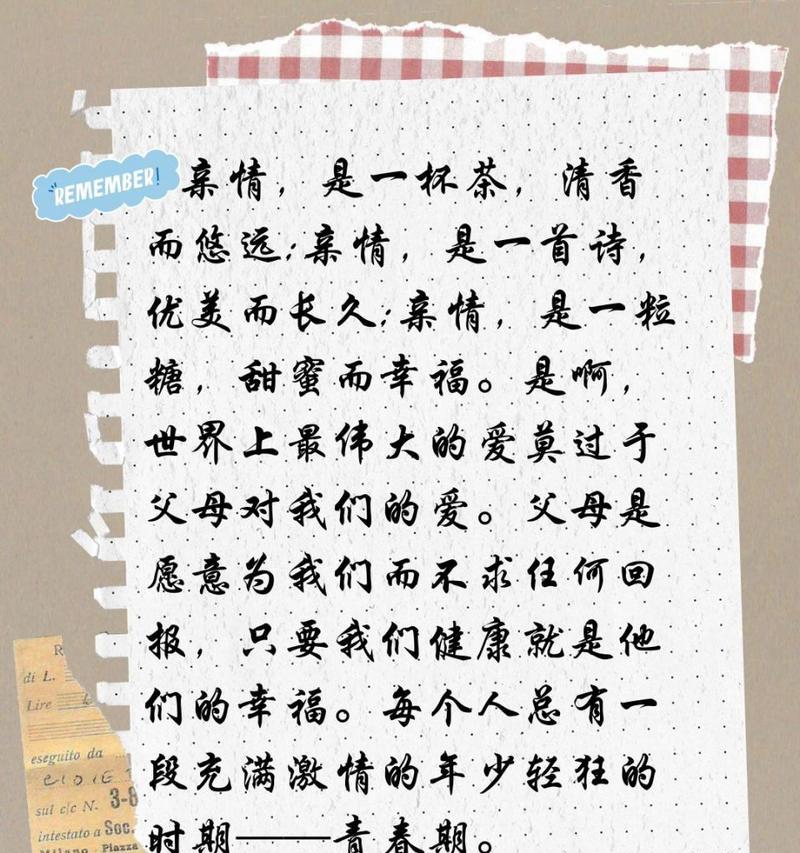 REMEMBER!
亲情，是一杯茶，清香
而悠远;亲情，是一首诗，
优美而长久;亲情，是一粒
糖，甜蜜而幸福。是啊，
世界上最伟大的爱莫过于
父母对我们的爱。父母是
愿意为我们而不求任何回
报，只要我们健康就是他
们的幸福。每个人总有一
段充满激情的年少轻狂的
时期——青春期。
R
di L.
Lire
eseguito da
sul c/c N. 3-8
intestato a Soc.
Milano Piazza